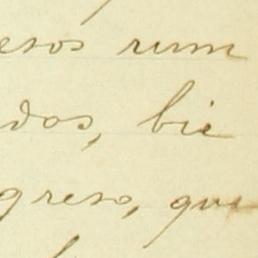 esos rum
dos, bie
greso, que